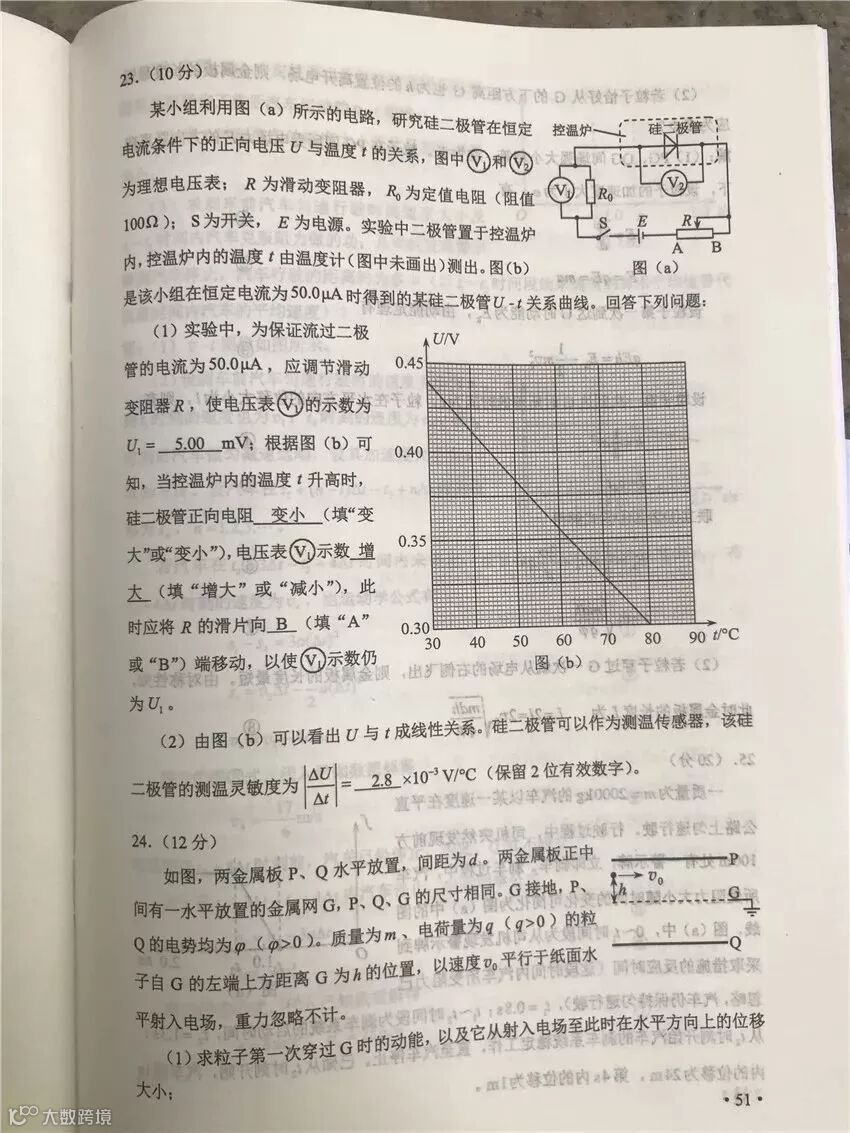 23．（10 分）
某小组利用图（a）所示的电路，研究硅二极管在恒定
电流条件下的正向电压 U 与温度 t 的关系，图中V₁和V₂
为理想电压表； R 为滑动变阻器， R₀ 为定值电阻（阻值
100Ω）； S 为开关， E 为电源。实验中二极管置于控温炉
内，控温炉内的温度 t 由温度计（图中未画出）测出。图（b）
是该小组在恒定电流为 50.0μA 时得到的某硅二极管 U - t 关系曲线。回答下列问题：
控温炉 硅二极管
V₁ R₀ V₂
S E R
A B
图（a）
（1）实验中，为保证流过二极
管的电流为 50.0μA ，应调节滑动
变阻器 R ，使电压表V₁的示数为
U₁ = 5.00 mV；根据图（b）可
知，当控温炉内的温度 t 升高时，
硅二极管正向电阻 变小 （填“变
大”或“变小”），电压表V₁示数 增
大 （填“增大”或“减小”），此
时应将 R 的滑片向 B （填“A”
或“B”）端移动，以使V₁示数仍
为 U₁ 。
U/V
0.45
0.40
0.35
0.30
30 40 50 60 70 80 90 t/°C
图（b）
（2）由图（b）可以看出 U 与 t 成线性关系。硅二极管可以作为测温传感器，该硅
二极管的测温灵敏度为 |ΔU/Δt| = 2.8 ×10⁻³ V/°C（保留 2 位有效数字）。
24．（12 分）
如图，两金属板 P、Q 水平放置，间距为 d 。两金属板正中
间有一水平放置的金属网 G，P、Q、G 的尺寸相同。G 接地，P、
Q 的电势均为 φ（φ>0）。质量为 m 、电荷量为 q（q>0）的粒
子自 G 的左端上方距离 G 为 h 的位置，以速度 v₀ 平行于纸面水
平射入电场，重力忽略不计。
P
v₀
h
G
Q
（1）求粒子第一次穿过 G 时的动能，以及它从射入电场至此时在水平方向上的位移
大小；
·51·
大数跨境